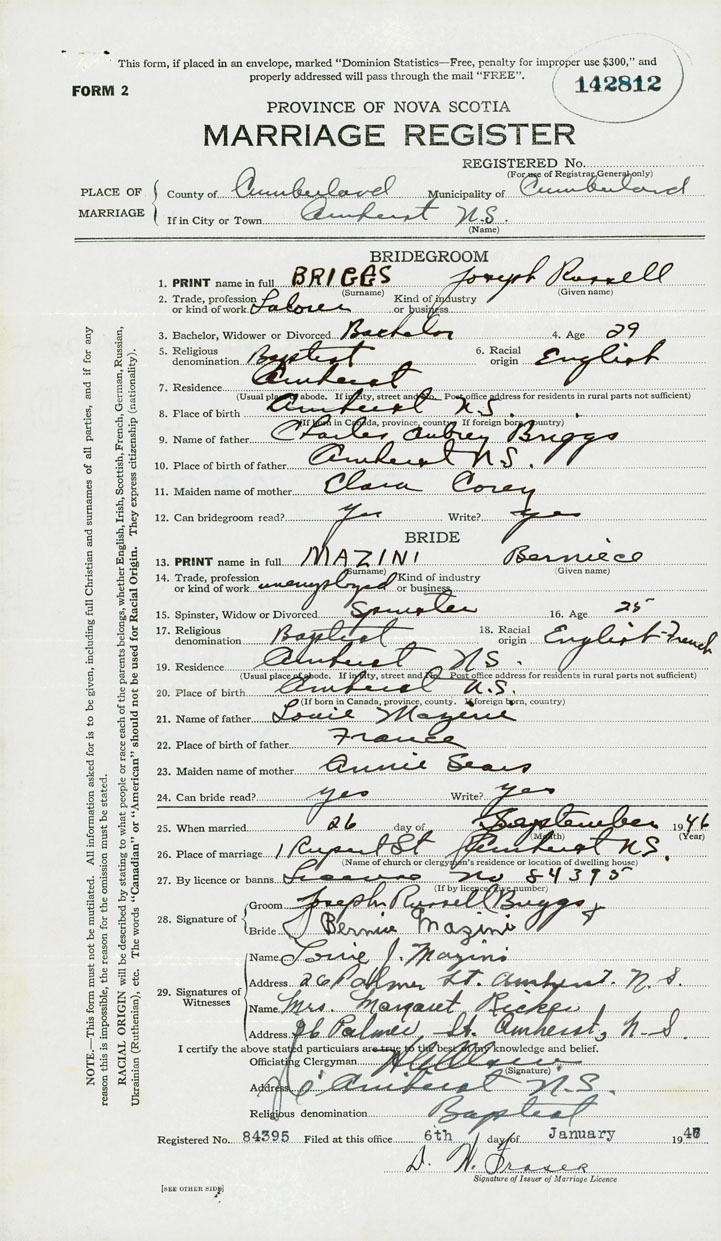 This form, if placed in an envelope, marked "Dominion Statistics—Free, penalty for improper use $300," and
properly addressed will pass through the mail "FREE".
142812
FORM 2
PROVINCE OF NOVA SCOTIA
MARRIAGE REGISTER
REGISTERED No.
(For use of Registrar General only)
PLACE OF MARRIAGE
County of Cumberland Municipality of Cumberland
If in City or Town Amherst N.S.
(Name)
BRIDEGROOM
1. PRINT name in full BRIGGS Joseph Russell
(Surname) (Given name)
2. Trade, profession or kind of work Laborer Kind of industry or business
3. Bachelor, Widower or Divorced Bachelor 4. Age 29
5. Religious denomination Baptist 6. Racial origin English
7. Residence Amherst
(Usual place of abode. If in city, street and No. Post office address for residents in rural parts not sufficient)
8. Place of birth Amherst N.S.
(If born in Canada, province, county. If foreign born, country)
9. Name of father Charles Aubrey Briggs
10. Place of birth of father Amherst N.S.
11. Maiden name of mother Clara Corey
12. Can bridegroom read? yes Write? yes
BRIDE
13. PRINT name in full MAZINI Berniece
(Surname) (Given name)
14. Trade, profession or kind of work unemployed Kind of industry or business
15. Spinster, Widow or Divorced Spinster 16. Age 25
17. Religious denomination Baptist 18. Racial origin English-French
19. Residence Amherst N.S.
(Usual place of abode. If in city, street and No. Post office address for residents in rural parts not sufficient)
20. Place of birth Amherst N.S.
(If born in Canada, province, county. If foreign born, country)
21. Name of father Louie Mazerie
22. Place of birth of father France
23. Maiden name of mother Annie Sears
24. Can bride read? yes Write? yes
25. When married 26 day of September 1946
(Month) (Year)
26. Place of marriage 1 Rupert St Amherst N.S.
(Name of church or clergyman's residence or location of dwelling house)
27. By licence or banns License No 84395
(If by licence, give number)
28. Signature of
Groom Joseph Russell Briggs
Bride Bernice Mazini
29. Signatures of Witnesses
Name Louie J. Mazini
Address 26 Palmer St. Amherst. N.S.
Name Mrs. Margaret
Address 26 Palmer St. Amherst, N.S.
I certify the above stated particulars are true to the best of my knowledge and belief.
Officiating Clergyman
(Signature)
Address Amherst N.S.
Religious denomination Baptist
Registered No. 84395 Filed at this office 6th day of January 194
D. W. Fraser
Signature of Issuer of Marriage Licence
[SEE OTHER SIDE]
NOTE.—This form must not be mutilated. All information asked for is to be given, including full Christian and surnames of all parties, and if for any
reason this is impossible, the reason for the omission must be stated.
RACIAL ORIGIN will be described by stating to what people or race each of the parents belongs, whether English, Irish, Scottish, French, German, Russian,
Ukrainian (Ruthenian), etc. The words "Canadian" or "American" should not be used for Racial Origin. They express citizenship (nationality).